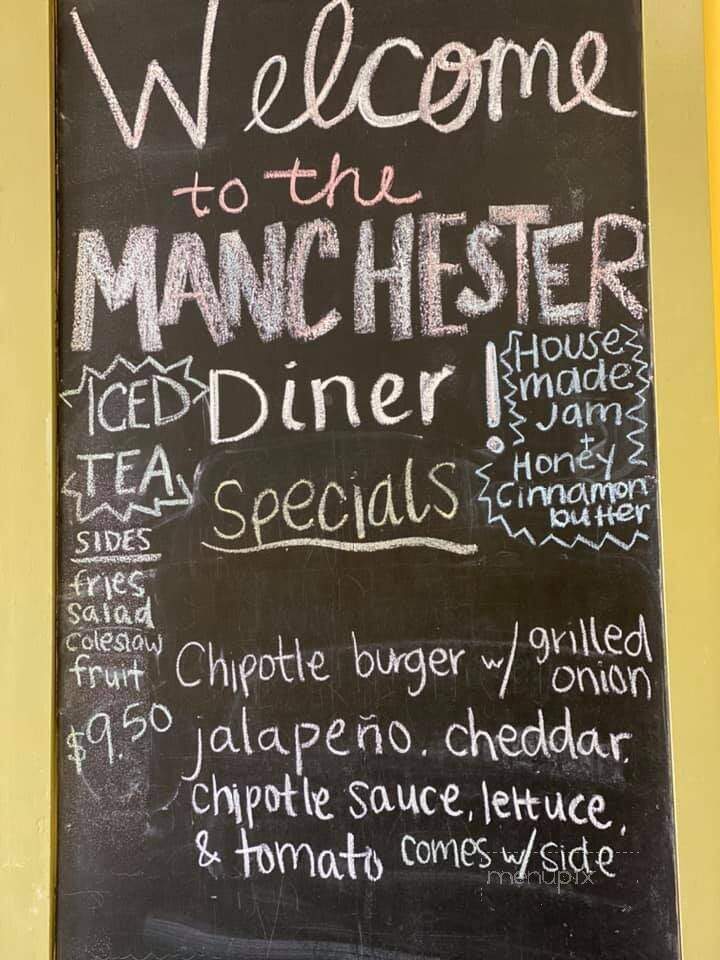 Welcome
to the
MANCHESTER
Diner !
ICED
TEA
House
made
Jam
+
Honey
Cinnamon
butter
Specials
SIDES
fries
salad
coleslaw
fruit
$9.50
Chipotle burger w/ grilled
onion
jalapeño. cheddar,
chipotle sauce, lettuce,
& tomato comes w/ side
menupix